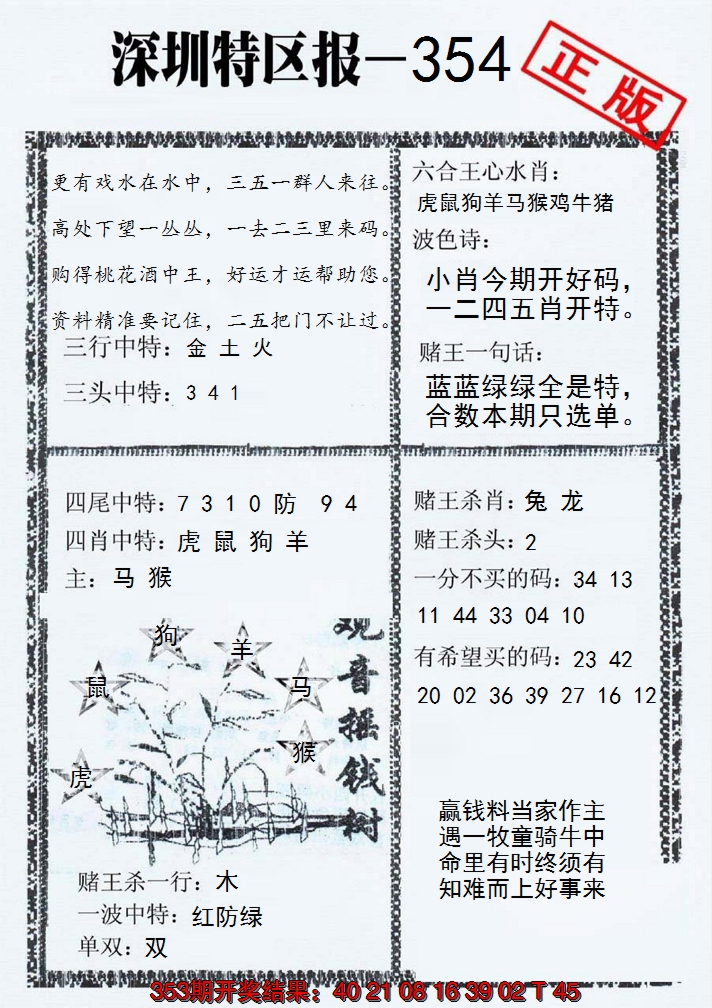 深圳特区报—354
正版
更有戏水在水中，三五一群人来往。
高处下望一丛丛，一去二三里来码。
购得桃花酒中王，好运才运帮助您。
资料精准要记住，二五把门不让过。
三行中特：金 土 火
三头中特：3 4 1
六合王心水肖：
虎鼠狗羊马猴鸡牛猪
波色诗：
小肖今期开好码，
一二四五肖开特。
赌王一句话：
蓝蓝绿绿全是特，
合数本期只选单。
四尾中特：7 3 1 0 防 9 4
四肖中特：虎 鼠 狗 羊
主：马 猴
狗
羊
鼠
马
猴
虎
观音摇钱树
赌王杀一行：木
一波中特：红防绿
单双：双
赌王杀肖：兔 龙
赌王杀头：2
一分不买的码：34 13
11 44 33 04 10
有希望买的码：23 42
20 02 36 39 27 16 12
赢钱料当家作主
遇一牧童骑牛中
命里有时终须有
知难而上好事来
353期开奖结果：40 21 08 16 39 02 T 45